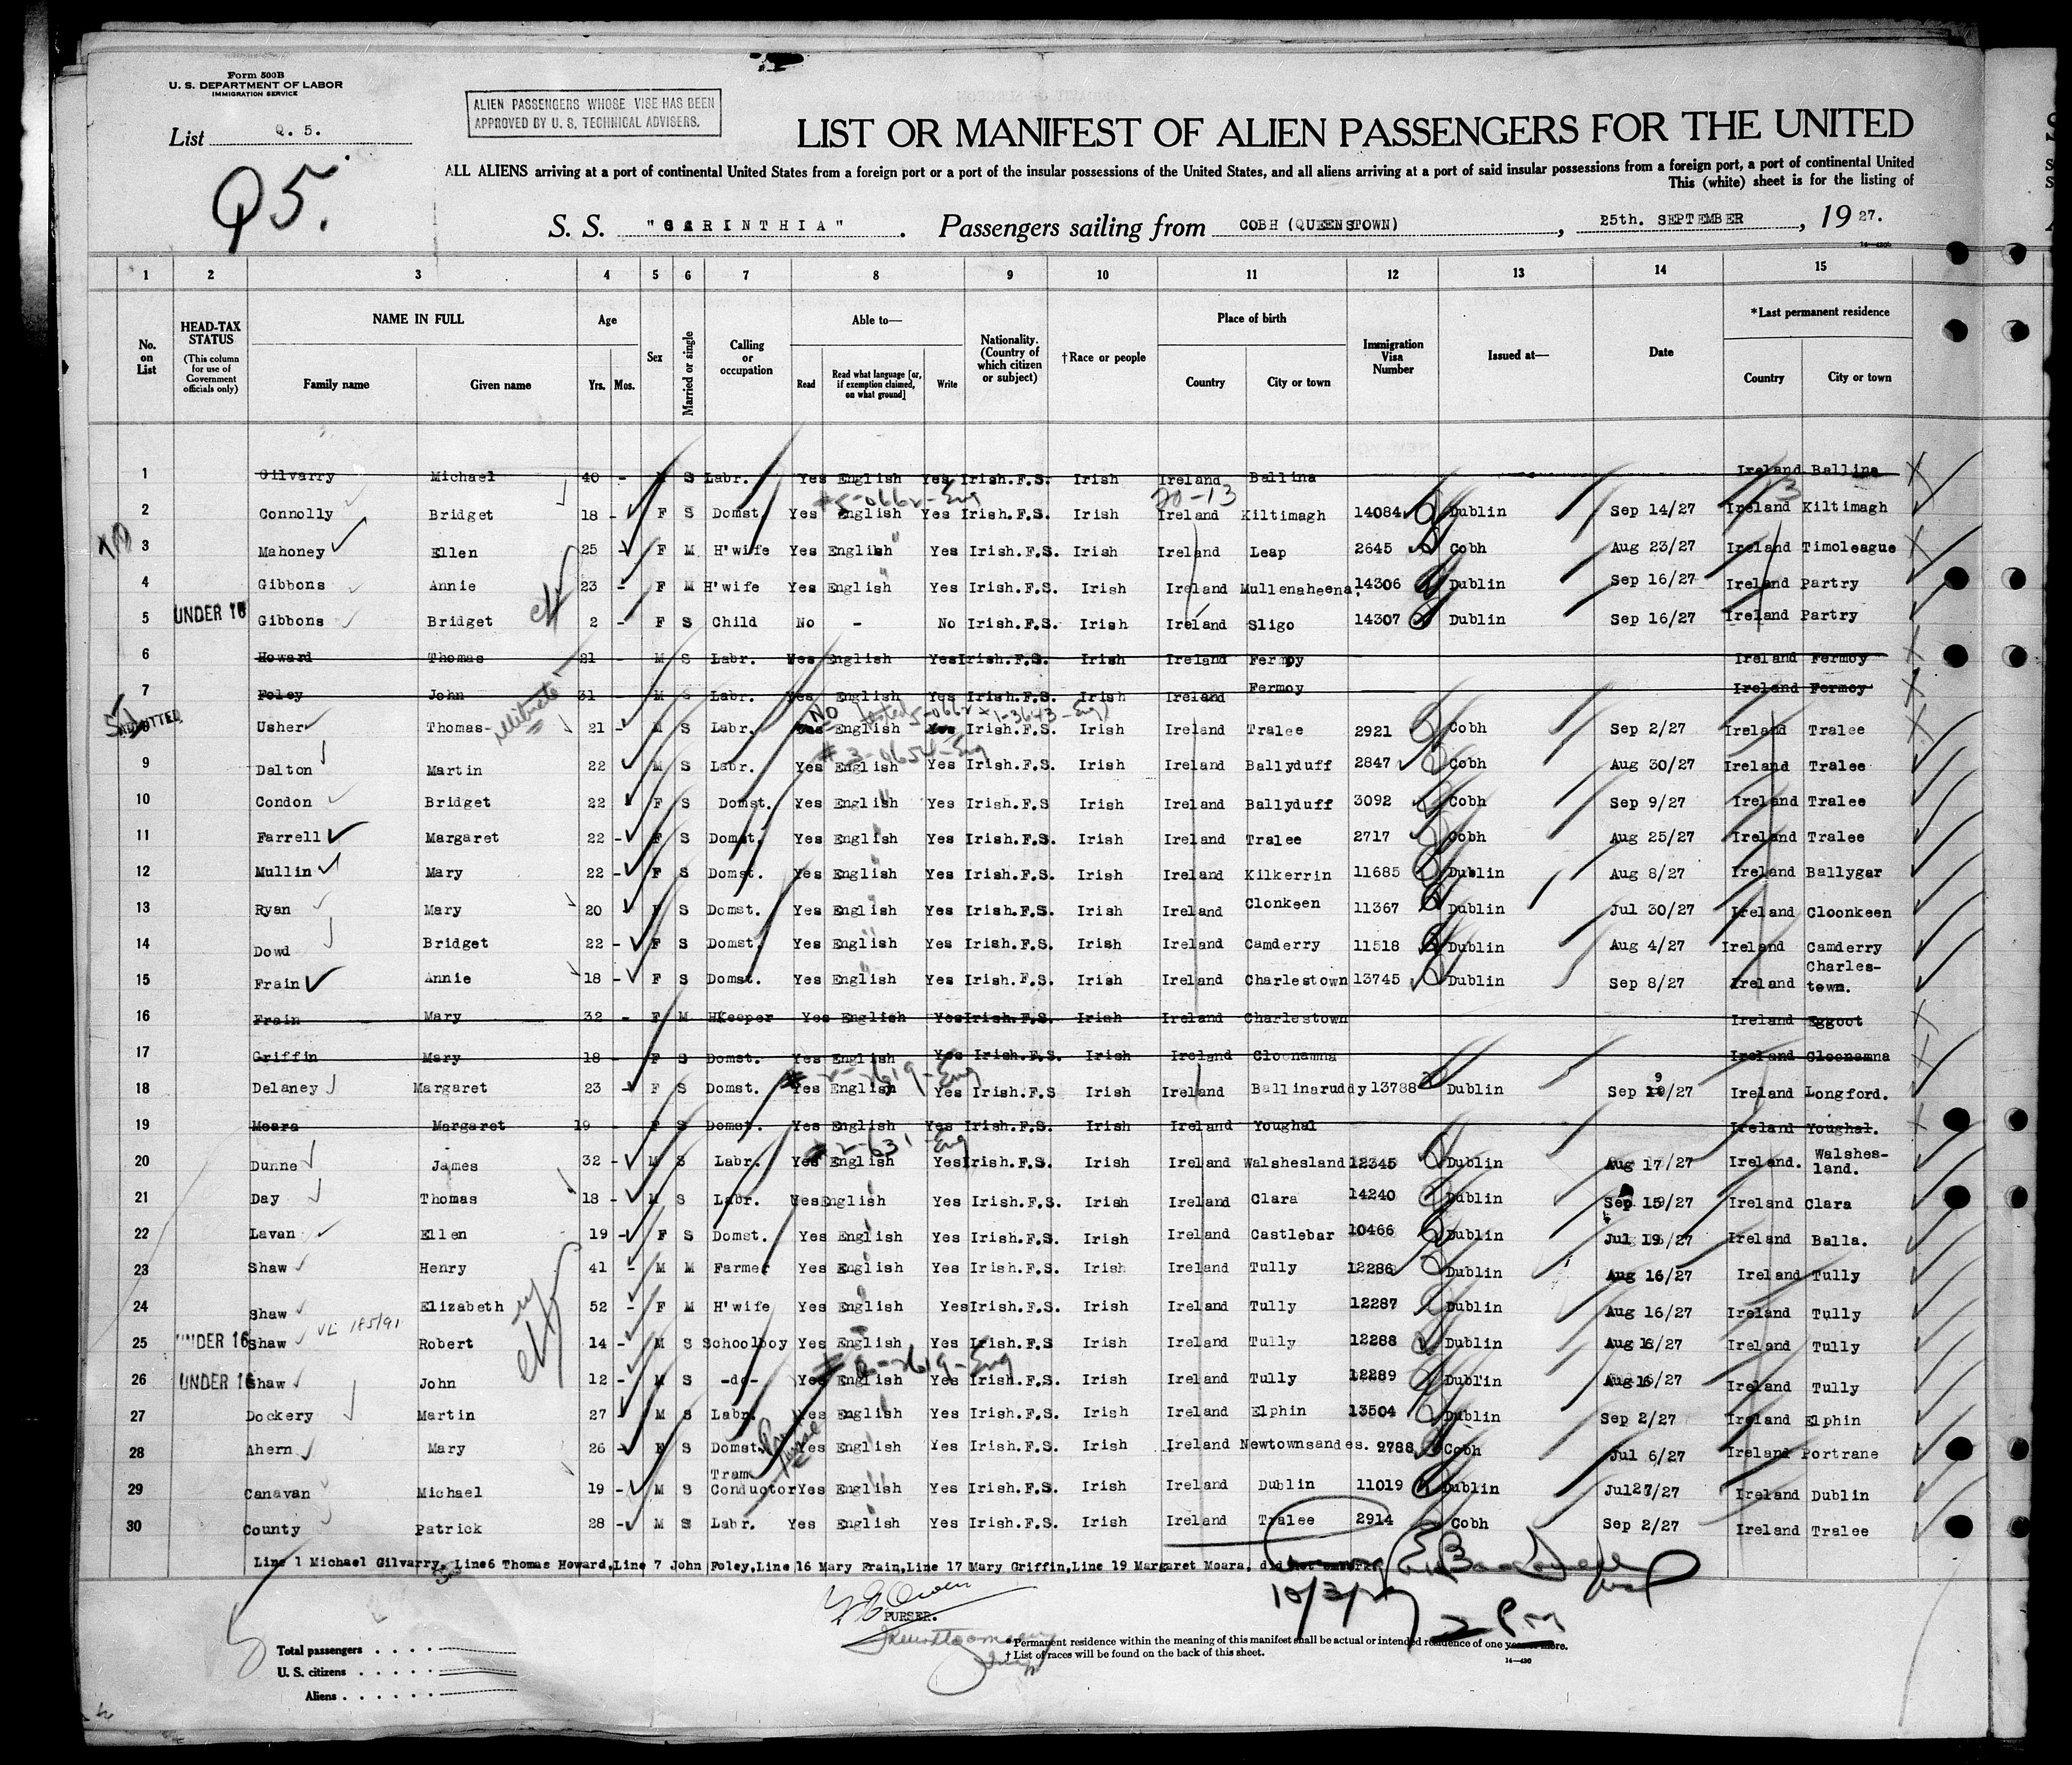 Form 500B
U. S. DEPARTMENT OF LABOR
IMMIGRATION SERVICE
List Q. 5.
Q5.
ALIEN PASSENGERS WHOSE VISE HAS BEEN
APPROVED BY U. S. TECHNICAL ADVISERS.
LIST OR MANIFEST OF ALIEN PASSENGERS FOR THE UNITED
ALL ALIENS arriving at a port of continental United States from a foreign port or a port of the insular possessions of the United States, and all aliens arriving at a port of said insular possessions from a foreign port, a port of continental United
This (white) sheet is for the listing of
S. S. "CARINTHIA". Passengers sailing from COBH (QUEENSTOWN), 25th. SEPTEMBER, 1927.
1 2 3 4 5 6 7 8 9 10 11 12 13 14 15
No. on List
HEAD-TAX STATUS (This column for use of Government officials only)
NAME IN FULL Family name Given name
Age Yrs. Mos.
Sex
Married or single
Calling or occupation
Able to— Read Read what language [or, if exemption claimed, on what ground] Write
Nationality. (Country of which citizen or subject)
†Race or people
Place of birth Country City or town
Immigration Visa Number
Issued at—
Date
*Last permanent residence Country City or town
1 Gilvarry Michael 40 - M S Labr. Yes English Yes Irish.F.S. Irish Ireland Ballina Ireland Ballina
#5-0662-Eng 20-13 3
2 Connolly Bridget 18 - F S Domst. Yes English Yes Irish.F.S. Irish Ireland Kiltimagh 14084 Dublin Sep 14/27 Ireland Kiltimagh
3 Mahoney Ellen 25 - F M H'wife Yes English Yes Irish.F.S. Irish Ireland Leap 2645 Cobh Aug 23/27 Ireland Timoleague
4 Gibbons Annie 23 - F M H'wife Yes English Yes Irish.F.S. Irish Ireland Mullenaheena. 14306 Dublin Sep 16/27 Ireland Partry
5 UNDER 16 Gibbons Bridget 2 - F S Child No - No Irish.F.S. Irish Ireland Sligo 14307 Dublin Sep 16/27 Ireland Partry
6 Howard Thomas 21 - M S Labr. Yes English Yes Irish.F.S. Irish Ireland Fermoy Ireland Fermoy
7 Foley John 31 - M S Labr. Yes English Yes Irish.F.S. Irish Ireland Fermoy Ireland Fermoy
illiterate No tested 5-0662 + 1-3643-Eng
8 ADMITTED Usher Thomas 21 - M S Labr. Yes English Yes Irish.F.S. Irish Ireland Tralee 2921 Cobh Sep 2/27 Ireland Tralee
#3-0654-Eng
9 Dalton Martin 22 M S Labr. Yes English Yes Irish.F.S. Irish Ireland Ballyduff 2847 Cobh Aug 30/27 Ireland Tralee
10 Condon Bridget 22 F S Domst. Yes English Yes Irish.F.S Irish Ireland Ballyduff 3092 Cobh Sep 9/27 Ireland Tralee
11 Farrell Margaret 22 - F S Domst. Yes English Yes Irish.F.S. Irish Ireland Tralee 2717 Cobh Aug 25/27 Ireland Tralee
12 Mullin Mary 22 - F S Domst. Yes English Yes Irish.F.S. Irish Ireland Kilkerrin 11685 Dublin Aug 8/27 Ireland Ballygar
13 Ryan Mary 20 F S Domst. Yes English Yes Irish.F.S. Irish Ireland Clonkeen 11367 Dublin Jul 30/27 Ireland Cloonkeen
14 Dowd Bridget 22 - F S Domst. Yes English Yes Irish.F.S. Irish Ireland Camderry 11518 Dublin Aug 4/27 Ireland Camderry
15 Frain Annie 18 - F S Domst. Yes English Yes Irish.F.S. Irish Ireland Charlestown 13745 Dublin Sep 8/27 Ireland Charles-town.
16 Frain Mary 32 - F M HKeeper Yes English Yes Irish.F.S. Irish Ireland Charlestown Ireland Eggoot
17 Griffin Mary 18 - F S Domst. Yes English Yes Irish.F.S. Irish Ireland Cloonamna Ireland Cloonamna
#2-2619-Eng
18 Delaney Margaret 23 - F S Domst. Yes English Yes Irish.F.S Irish Ireland Ballinaruddy 13788 Dublin Sep 9/27 Ireland Longford.
19 Meara Margaret 19 - F S Domst. Yes English Yes Irish.F.S. Irish Ireland Youghal Ireland Youghal.
#2-631-Eng
20 Dunne James 32 - M S Labr. Yes English Yes Irish.F.S. Irish Ireland Walshesland 12345 Dublin Aug 17/27 Ireland. Walshes-land.
21 Day Thomas 18 - M S Labr. Yes English Yes Irish.F.S. Irish Ireland Clara 14240 Dublin Sep 15/27 Ireland Clara
22 Lavan Ellen 19 - F S Domst. Yes English Yes Irish.F.S Irish Ireland Castlebar 10466 Dublin Jul 19/27 Ireland Balla.
23 Shaw Henry 41 - M M Farmer Yes English Yes Irish.F.S. Irish Ireland Tully 12286 Dublin Aug 16/27 Ireland Tully
24 Shaw Elizabeth 52 - F M H'wife Yes English Yes Irish.F.S. Irish Ireland Tully 12287 Dublin Aug 16/27 Ireland Tully
25 UNDER 16 Shaw VL 185/91 Robert 14 - M S Schoolboy Yes English Yes Irish.F.S Irish Ireland Tully 12288 Dublin Aug 16/27 Ireland Tully
#2-2619-Eng
26 UNDER 16 Shaw John 12 - M S -do- Yes English Yes Irish.F.S. Irish Ireland Tully 12289 Dublin Aug 16/27 Ireland Tully
27 Dockery Martin 27 M S Labr. Yes English Yes Irish.F.S. Irish Ireland Elphin 13504 Dublin Sep 2/27 Ireland Elphin
28 Ahern Mary 26 F S Domst. Nurse Yes English Yes Irish.F.S. Irish Ireland Newtownsandes. 2788 Cobh Jul 6/27 Ireland Portrane
29 Canavan Michael 19 - M S Tram Conductor Yes English Yes Irish.F.S. Irish Ireland Dublin 11019 Dublin Jul 27/27 Ireland Dublin
30 County Patrick 28 - M S Labr. Yes English Yes Irish.F.S. Irish Ireland Tralee 2914 Cobh Sep 2/27 Ireland Tralee
Line 1 Michael Gilvarry, Line6 Thomas Howard,Line 7 John Foley,Line 16 Mary Frain,Line 17 Mary Griffin,Line 19 Margaret Moara. did not embark.
10/3/27 2 PM
PURSER.
Total passengers
U. S. citizens
Aliens
* Permanent residence within the meaning of this manifest shall be actual or intended residence of one year or more.
† List of races will be found on the back of this sheet.
14—430